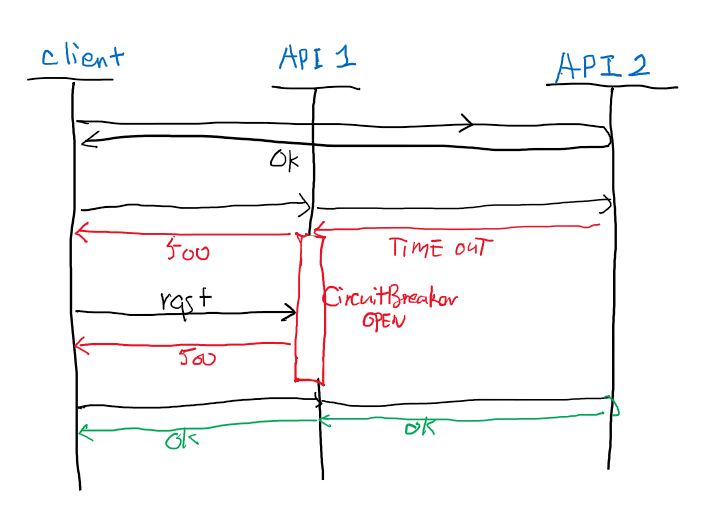 client
API 1
API 2
Ok
500
TIME OUT
rqst
CircuitBreaker
OPEN
500
ok
ok